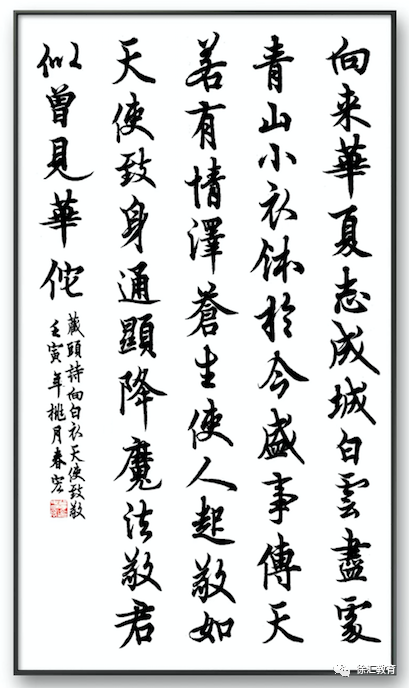 向来華夏志成城白雲盡處
青山小衣体於今盛事傳天
若有情澤蒼生使人起敬如
天使致身通顯降魔法敬君
似曾見華佗
藏頭詩向白衣天使致敬
壬寅年桃月春宏
徐汇教育